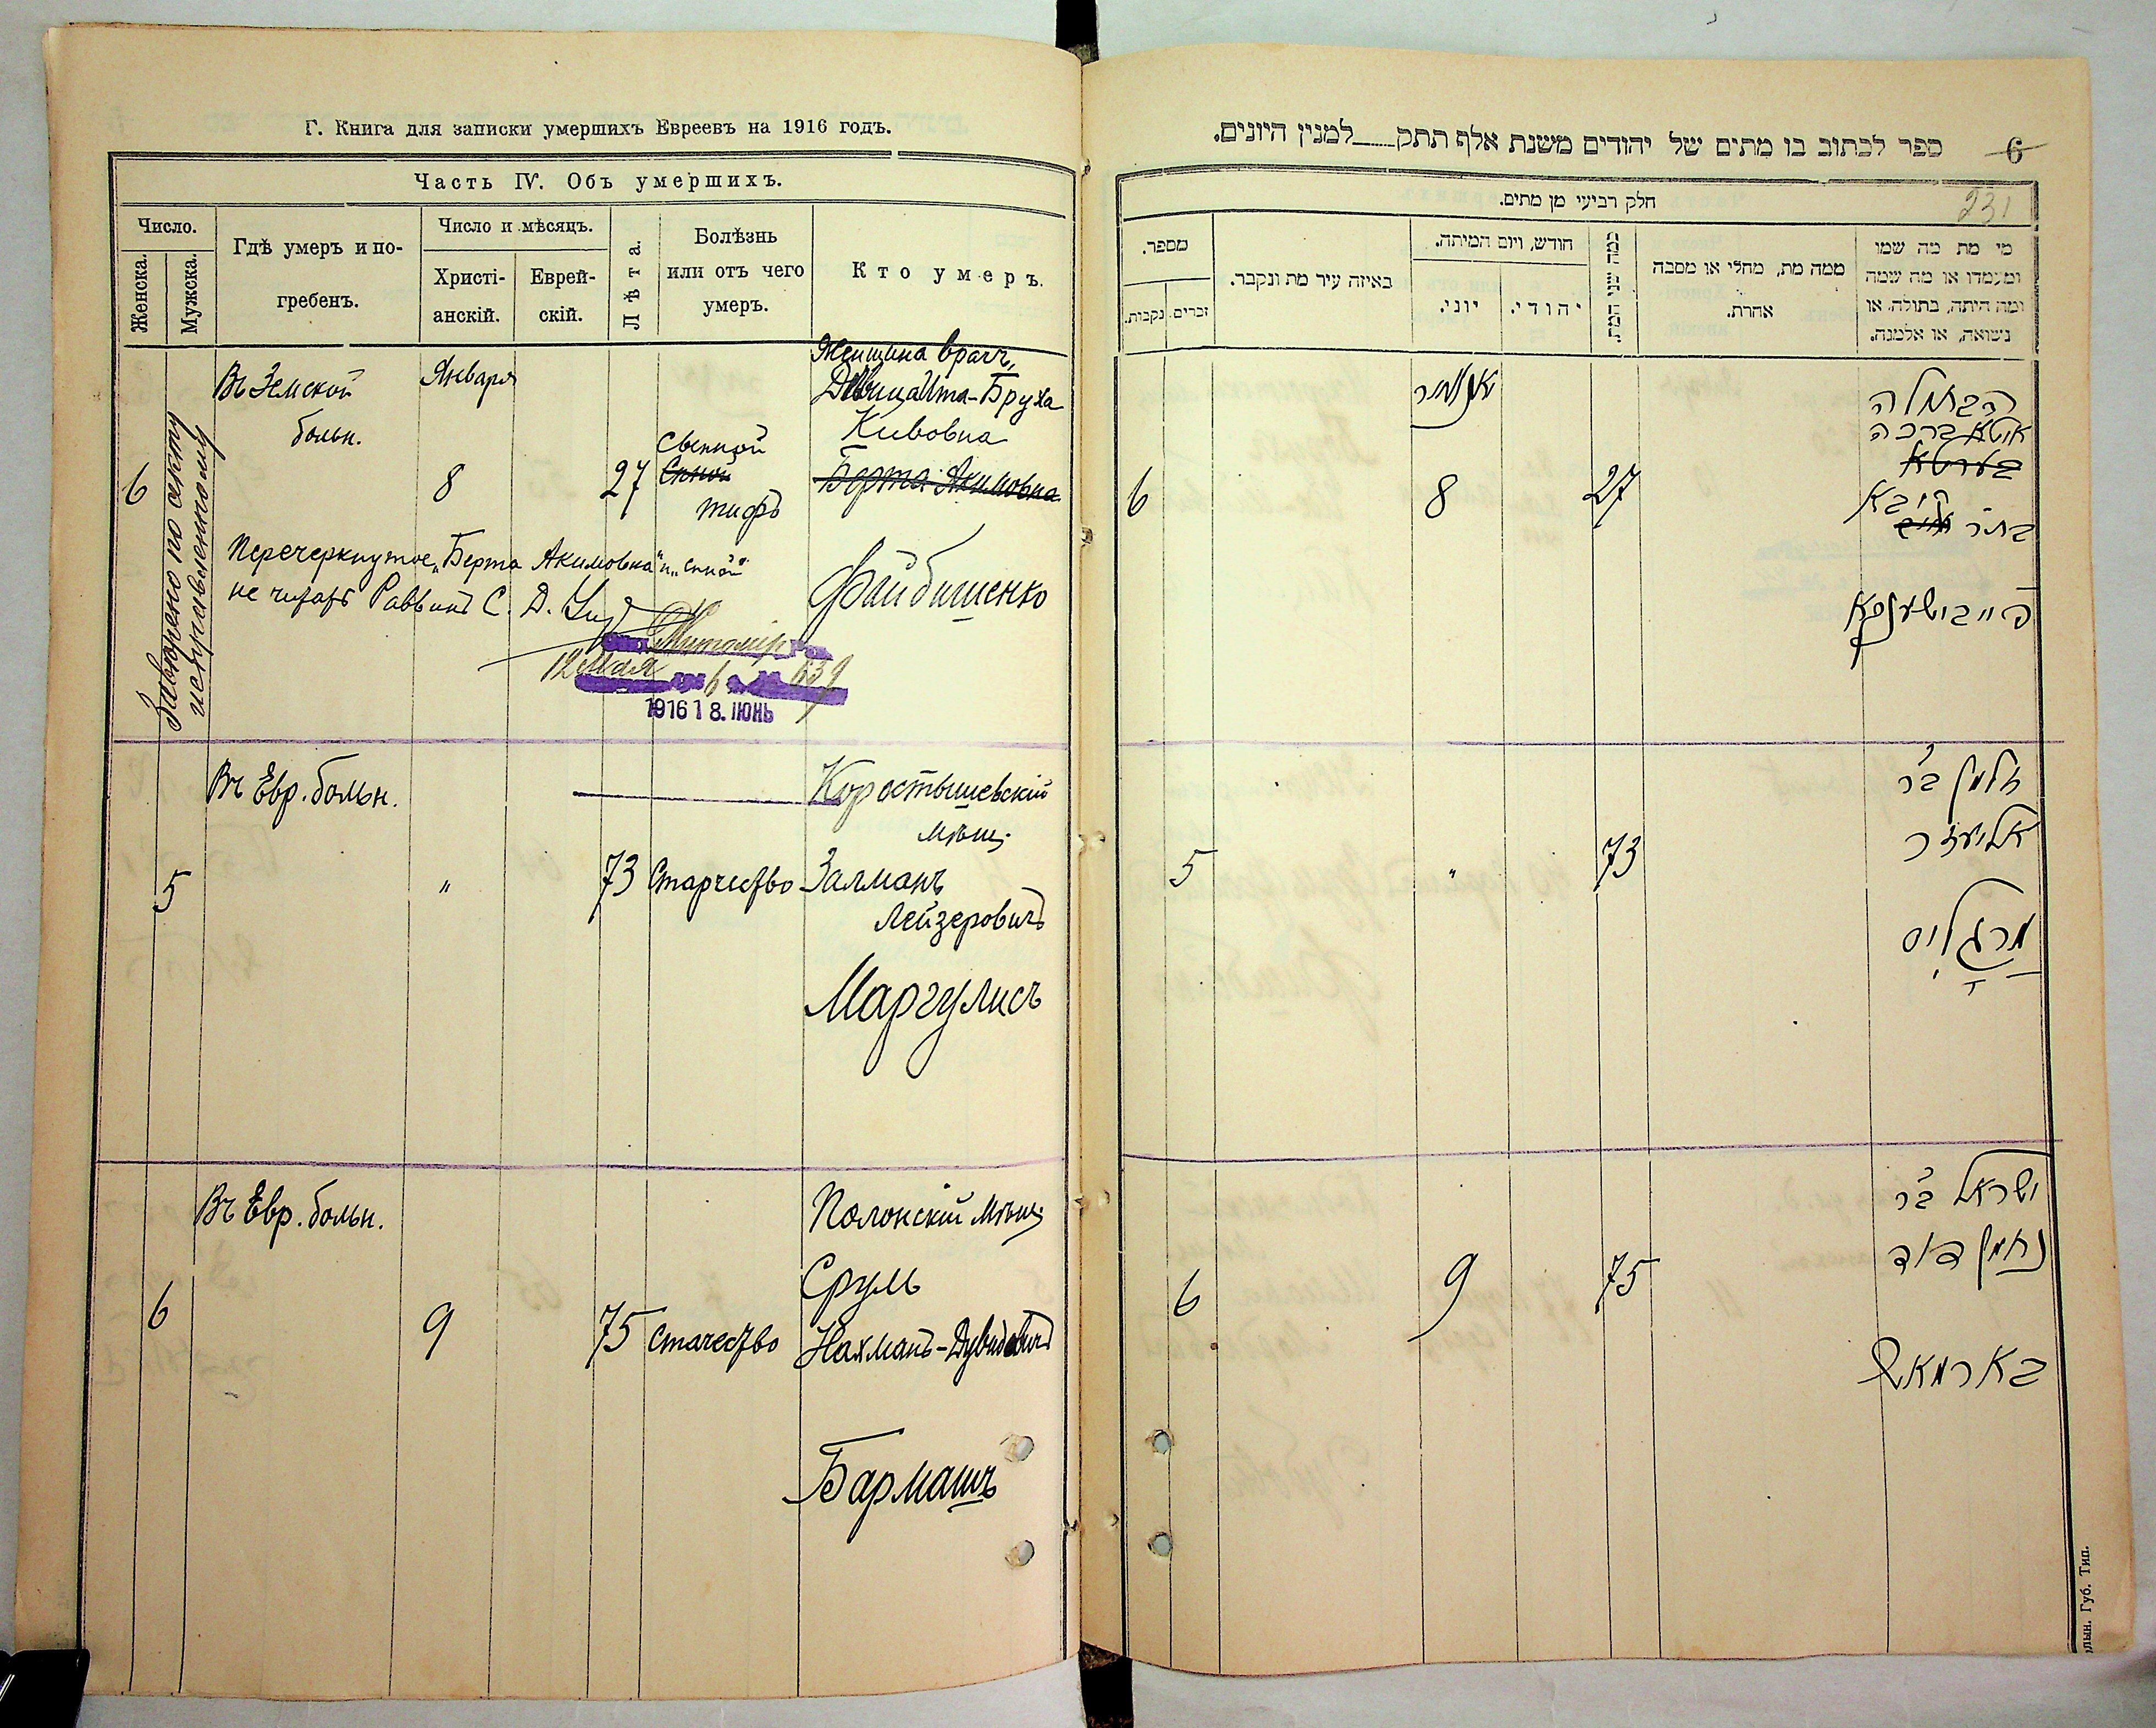 Г. Книга для записки умершихъ Евреевъ на 1916 годъ.
Часть IV. Объ умершихъ.
Число.
Женска.
Мужска.
Гдѣ умеръ и по-
гребенъ.
Число и мѣсяцъ.
Христі-
анскій.
Еврей-
скій.
Лѣта.
Болѣзнь
или отъ чего
умеръ.
Кто умеръ.
6
Въ Земской
больн.
Января
8
27
Сыпной
Спной
тифъ
Женщина врачъ,
Дѣвица Ита-Бруха
Кивовна
Берта Акимовна
Файбишенко
Перечеркнутое „Берта Акимовна" и „спной"
не читать Раввинъ С. Д.
12 Мая 6 639
1916 18. ІЮНЬ
по акту
исправленному
5
Въ Евр. больн.
"
73
Старчество
Коростышевскій
мѣщ.
Залманъ
Лейзеровичъ
Маргулисъ
6
Въ Евр. больн.
9
75
Стачество
Полонскій мѣщ.
Сруль
Нахманъ-Дувидовичъ
Бармашъ
ספר לכתוב בו מתים של יהודים משנת אלף תתק___למנין היונים.
6
231
חלק רביעי מן מתים.
מספר.
נקבות.
זכרים.
באיזה עיר מת ונקבר.
חודש, ויום המיתה.
יוני.
יהודי.
כמה שני המת.
ממה מת, מחלי או מסבה
אחרת.
מי מת מה שמו
ומעמדו או מה שמה
ומה היתה, בתולה, או
נשואה, או אלמנה.
6
יאנואר
8
27
הבתולה
איטא ברכה
בערטא
בת ר'
קיבא
פייבושענקא
5
"
73
זלמן ב"ר
אליעזר
מרגליס
6
9
75
ישראל ב"ר
נחמן דוד
בארמאש
Губ. Тип.